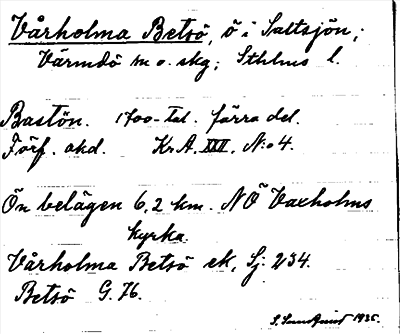 Vårholma Betsö, ö i Saltsjön;
Värmdö m o. skg; Sthlms l.
Bastön. 1700-tal. förra del.
Förf. okd. Kr.A. XXI, N:o 4.
Ön belägen 6,2 km. NÖ Vaxholms
kyrka.
Vårholma Betsö ek, Sj. 234.
Betsö G. 76.
1935.